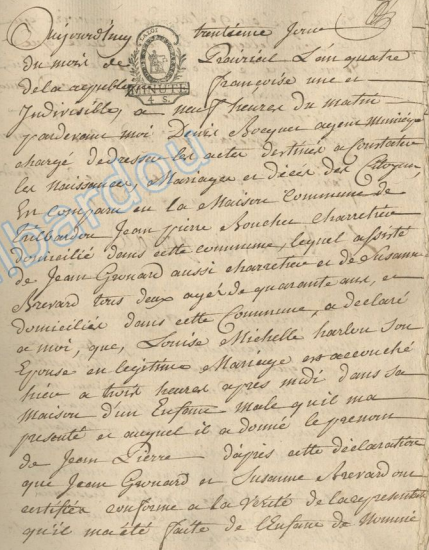 Aujourd'huy trentieme jour
du mois de Prairial L'an quatre
de la republique françoise une et
Indivisible, a neuf heures du matin
pardevant moi Denis Bocquet agent municipal
chargé de dresser les actes destinés a constater
les naissances, Mariages et décès des Citoyens,
En comparu en la Maison Commune de
trilbardou Jean pierre Boucher charretier
domicilié dans cette commune, lequel assisté
de Jean Gronard aussi charretier et de Susanne
Brevard tous deux agés de quarante ans, et
domiciliés dans cette Commune, a déclaré
a moi, que, Louise Michelle harlou Son
Epouse en legitime Mariage est accouché
hier a trois heures apres midi dans sa
maison d'un Enfant male qu'il m'a
presenté et auquel il a donné le prenom
de Jean Pierre d'après cette déclaration
que Jean Gronard et Susanne Brevard ont
certifiée conforme a la Verité de la
qu'il m'a été faite de l'Enfant de Nommé
MINUTE
4 S.